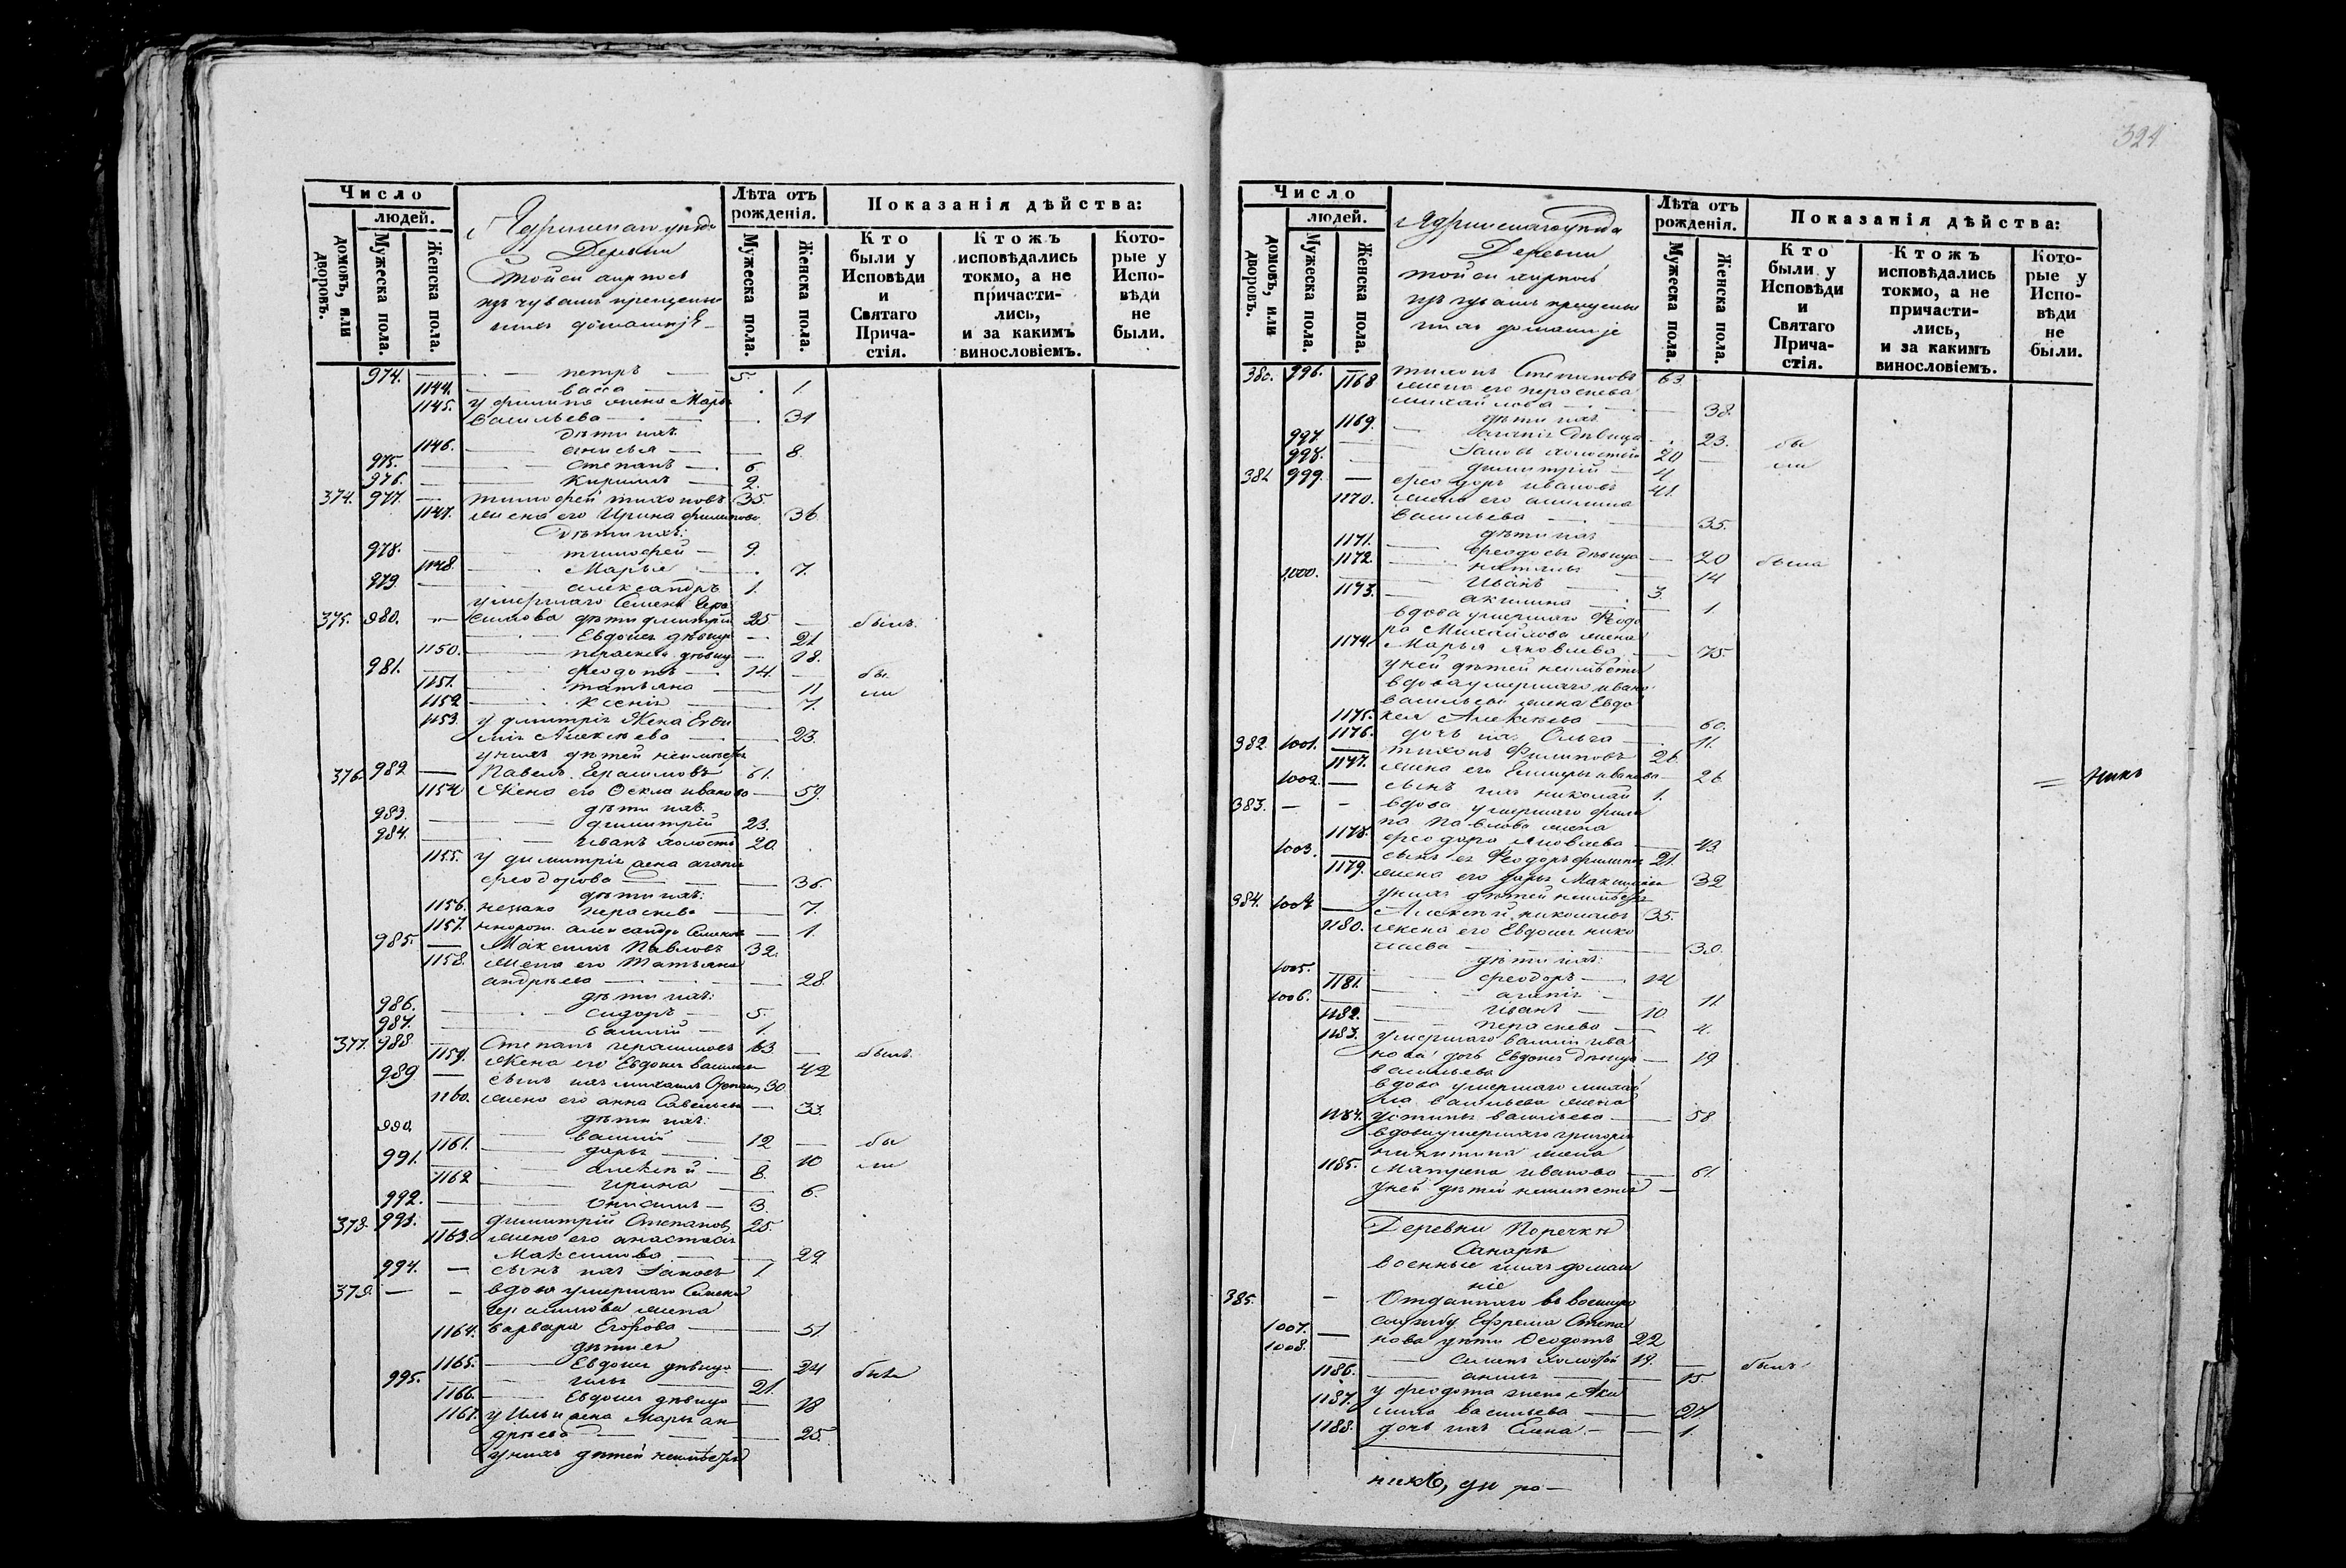 Число
людей.
домовъ, или дворовъ.
Мужеска пола.
Женска пола.
Деревни
изъ чувашъ
Лѣта отъ рожденія.
Мужеска пола.
Женска пола.
Показанія дѣйства:
Кто были у Исповѣди и Святаго Причастія.
Ктожъ исповѣдались токмо, а не причастились, и за какимъ винословіемъ.
Которые у Исповѣди не были.
974. — петръ — 5.
1144. васса — 1.
1145. у филипа жена Марья
Васильева — 31
дѣти ихъ
1146. анисья — 8.
975. — Степанъ — 6.
976. — Кирилъ — 2.
374. 977. — тимофей тихоновъ 35.
1147. жена его Ирина филипова 36
дѣти ихъ:
978. — тимофей — 9.
1148. Марья — 7.
979. — александръ 1.
умершаго Семена Гера
375. 980. симова дѣти димитрій 25 — былъ
Евдокія дѣвица — 21
1150. пераскева дѣвица — 18.
981. — феодотъ — 14. — бы
1151. татьяна — 11 ли
1152 Ксенія — 7.
1153. у димитрія Жена
Алексѣева — 23.
у нихъ дѣтей неимѣетъ
376. 982 — Павелъ Герасимовъ 61.
1154 Жена его Фекла иванова — 59.
дѣти ихъ
983. — димитрій 23.
984. — иванъ холостъ 20.
1155. у димитрія жена агапія
феодорова — 36.
дѣти ихъ:
1156. пераскева — 7.
1157. — 1.
985. — Максимъ Павловъ 32.
1158. Жена его Татьяна
андрѣева — 28.
дѣти ихъ:
986. — сидоръ — 5.
987. — василій — 1.
377. 988 — Степанъ герасимовъ 63 — былъ
1159. Жена его Евдокія васильева 42
989 — сынъ ихъ михаилъ 30
1160. жена его анна Савельева — 33.
дѣти ихъ:
990. — василій — 12 — бы
1161. дарья — 10 ли
991. — алексѣй — 8.
1162 ирина — 6.
992. — Онисимъ — 3.
378. 993. — димитрій Степановъ 25.
1163. жена его анастасія
Максимова — 29
994. — сынъ ихъ Іаковъ 1.
379. — — вдова умершаго Семена
герасимова жена
1164. варвара Егорова — 51
дѣти ея
1165. Евдокія дѣвица — 24 была
995. — илья — 21.
1166. Евдокія дѣвица — 18
1167. у Ильи жена Марья ан
дрѣева — 25.
у нихъ дѣтей неимѣетъ
324
Число
людей.
домовъ, или дворовъ.
Мужеска пола.
Женска пола.
Деревни
изъ чувашъ
Лѣта отъ рожденія.
Мужеска пола.
Женска пола.
Показанія дѣйства:
Кто были у Исповѣди и Святаго Причастія.
Ктожъ исповѣдались токмо, а не причастились, и за какимъ винословіемъ.
Которые у Исповѣди не были.
380. 996. тихонъ Степановъ 63.
1168 жена его пераскева
михайлова — 38.
дѣти ихъ
1169. агапія дѣвица — 23. бы
997. — Іаковъ холостой 20 — ли
998. — димитрій — 4
381. 999. — феодоръ ивановъ 41.
1170. жена его акилина
Васильева — 35.
дѣти ихъ
1171. феодосья дѣвица — 20 была
1172. наталья — 14
1000. — Иванъ — 3.
1173. акилина — 1.
вдова умершаго Феодо
ра Михайлова жена
1174. Марья яковлева — 75.
у ней дѣтей неимѣетъ
вдова умершаго ивана
васильева жена Евдо
1175. кея Алексѣева — 60.
1176. дочь ихъ Ольга — 11.
382. 1001. — тихонъ Филиповъ 26.
1177. жена его иванова — 26
1002. — сынъ ихъ николай 1.
383. — — вдова умершаго фили
па Павлова жена
1178. феодора яковлева — 43.
1003. — сынъ ея Феодоръ филиповъ 21.
1179. жена его дарья Максимова 32
у нихъ дѣтей неимѣетъ
384. 1004 — Алексѣй николаевъ 35.
1180. жена его Евдокія нико
лаева — 30.
дѣти ихъ:
1005. — феодоръ — 14
1181. агапія — 11.
1006. — иванъ — 10
1182. пераскева — 4.
1183. умершаго василія ива
нова дочь Евдокія дѣвица — 19
васильева
вдова умершаго михаи
ла васильева жена
1184. устинья васильева — 58
вдова умершаго григорія
никитина жена
1185. Матрена иванова — 61.
у ней дѣтей неимѣетъ —
Деревни Поречки
военные ихъ домаш
ніе
385. — Отданнаго въ военную
службу Ефрема Степа
1007. — нова дѣти Феодотъ 22
1008. — Семенъ холостой 19. — былъ
1186. — 15.
1187. у феодота жена Аки
лина васильева — 27
1188. дочь ихъ Елена — 1.